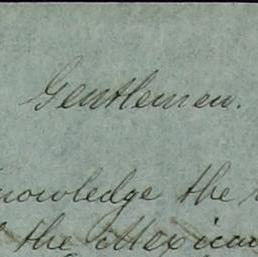 Gentlemen.
nowledge the
the Mexican